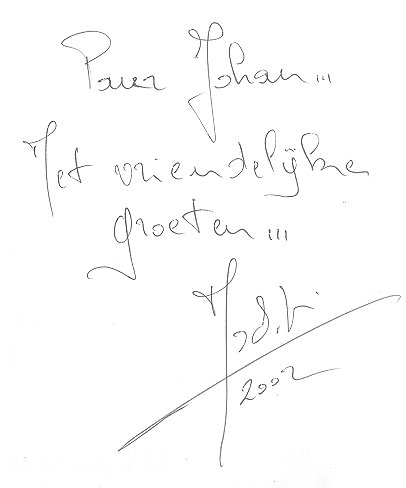 Pour Johan...
Met vriendelijke
groeten...
2002